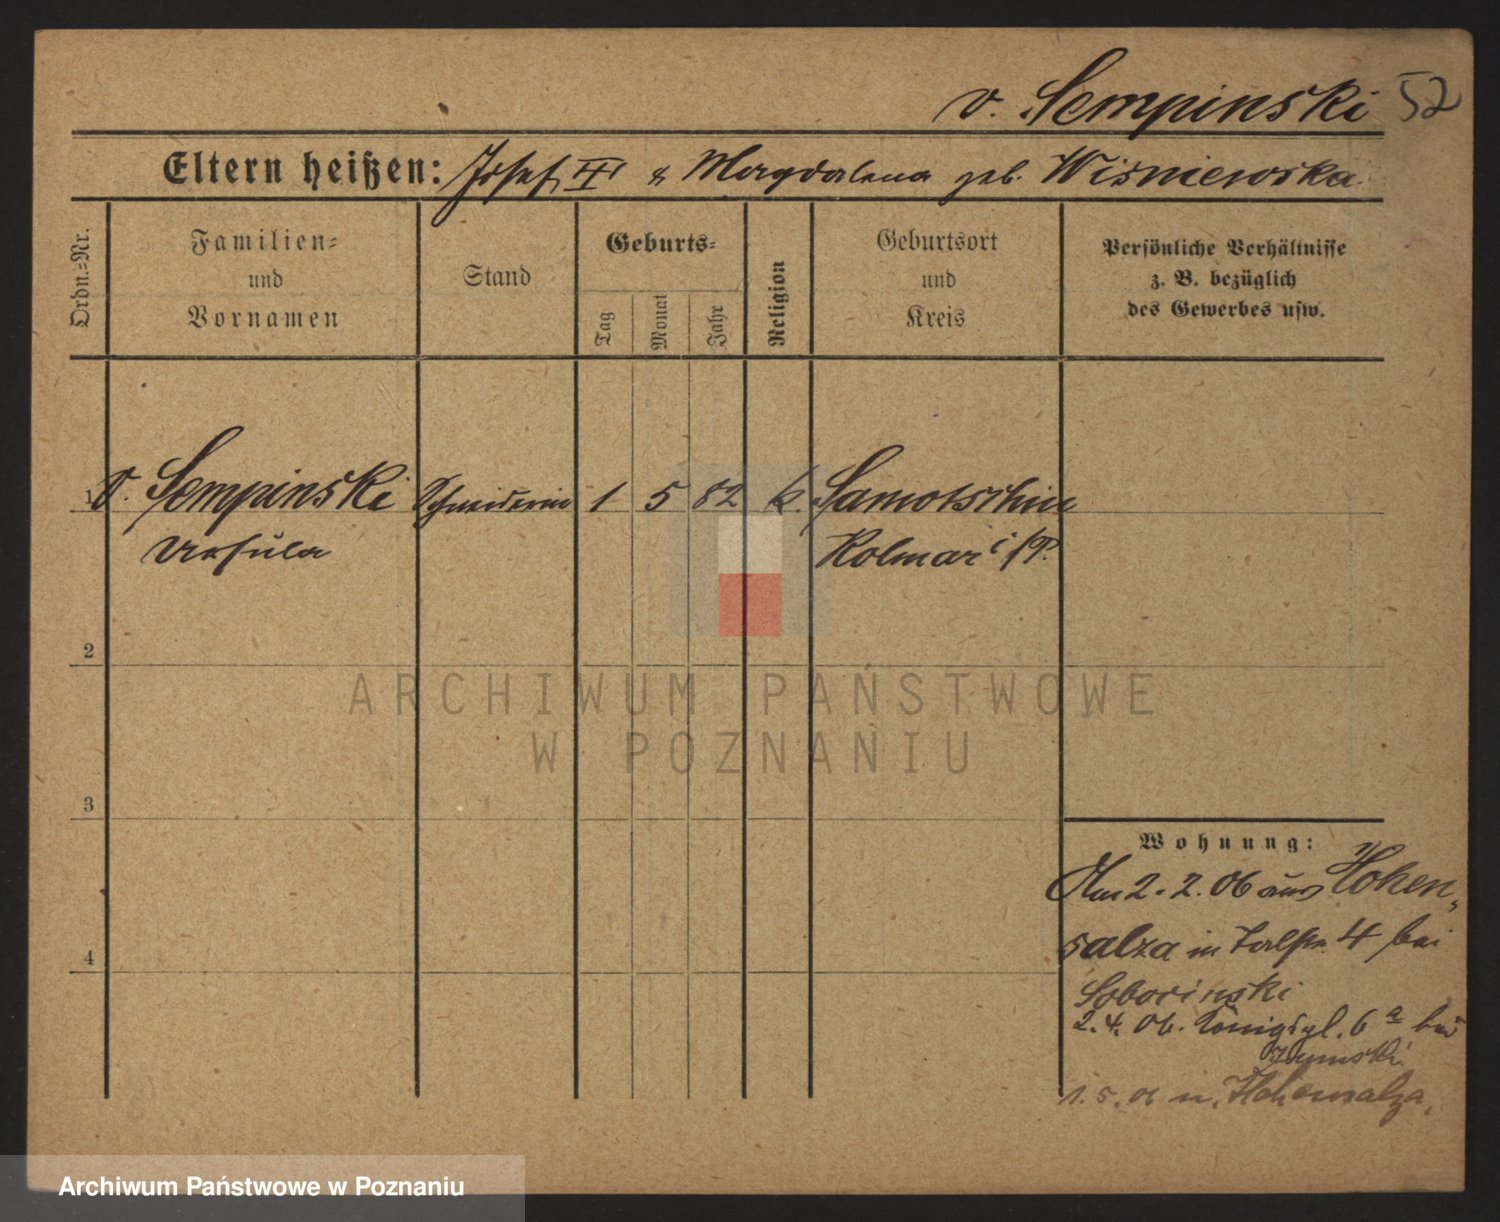 v. Sempinski 52
Eltern heißen: Josef III & Magdalena geb. Wisniewska.
Ordn.=Nr.
Familien=
und
Vornamen
Stand
Geburts=
Tag
Monat
Jahr
Religion
Geburtsort
und
Kreis
Persönliche Verhältnisse
z. B. bezüglich
des Gewerbes usw.
1 v. Sempinski Schneiderin 1 5 82 k. Samotschin
Ursula Kolmar i/P.
2
3
4
Wohnung:
Am 2. 2. 06 aus Hohen„
salza in 4 bei
2. 4. 06. Königspl. 6a bei
1. 5. 06 n. Hohensalza.
ARCHIWUM PAŃSTWOWE
W POZNANIU
Archiwum Państwowe w Poznaniu